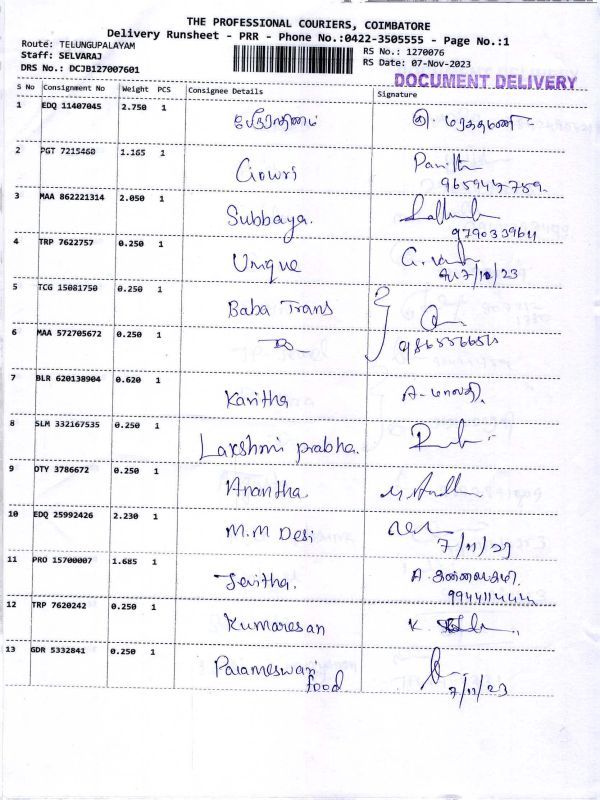 THE PROFESSIONAL COURIERS, COIMBATORE
Delivery Runsheet - PRR - Phone No.:0422-3505555 - Page No.:1
Route: TELUNGUPALAYAM
Staff: SELVARAJ
DRS No.: DCJB127007601
RS No.: 1270076
RS Date: 07-Nov-2023
DOCUMENT DELIVERY
S No Consignment No Weight PCS Consignee Details Signature
1 EDQ 11407045 2.750 1
2 PGT 7215460 1.165 1 Gowri
3 MAA 862221314 2.050 1 Subbaya.
4 TRP 7622757 0.250 1 Unique
5 TCG 15081750 0.250 1 Baba Trans
6 MAA 572705672 0.250 1
7 BLR 620138904 0.620 1 Kavitha
8 SLM 332167535 0.250 1 Lakshmi prabha.
9 OTY 3786672 0.250 1 Anantha
10 EDQ 25992426 2.230 1 M.M Desi
7/11/23
11 PRO 15700007 1.685 1
12 TRP 7620242 0.250 1 Kumaresan K.
13 GDR 5332841 0.250 1 Parameswari
food 7/11/23